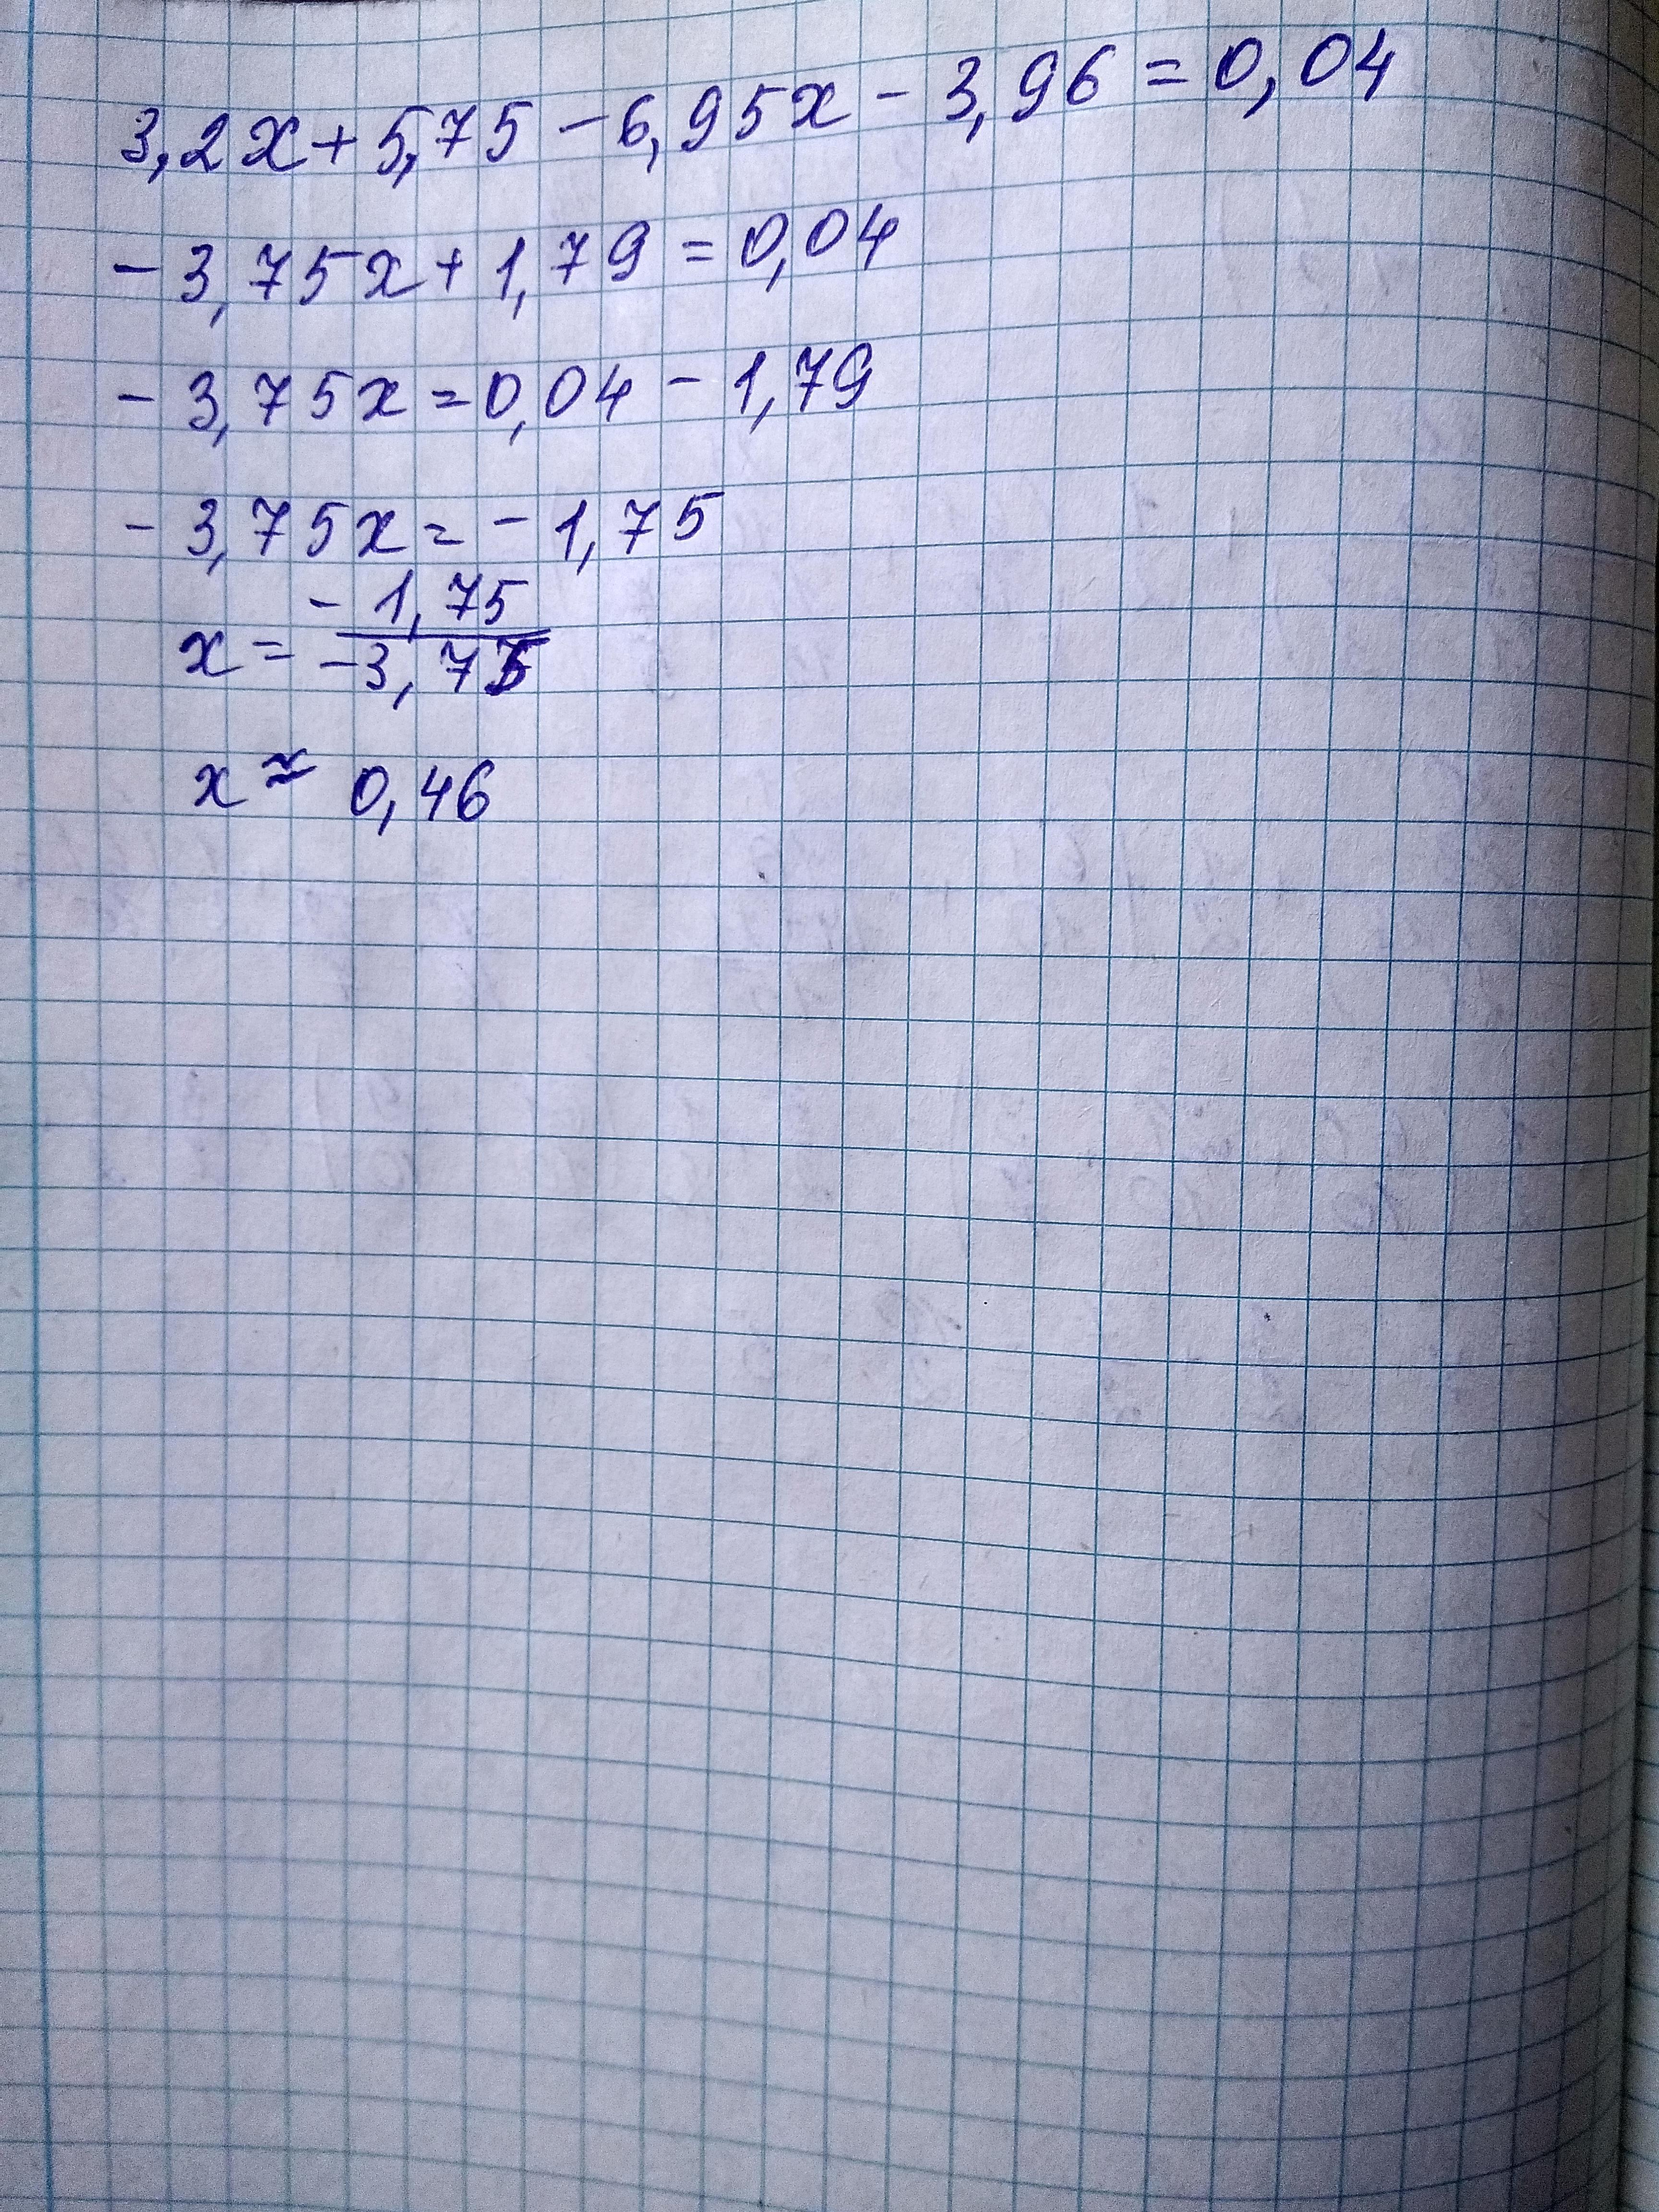 3,2x + 5,75 - 6,95x - 3,96 = 0,04
- 3,75x + 1,79 = 0,04
- 3,75x = 0,04 - 1,79
- 3,75x = - 1,75
x = - 1,75 / -3,75
x ≈ 0,46